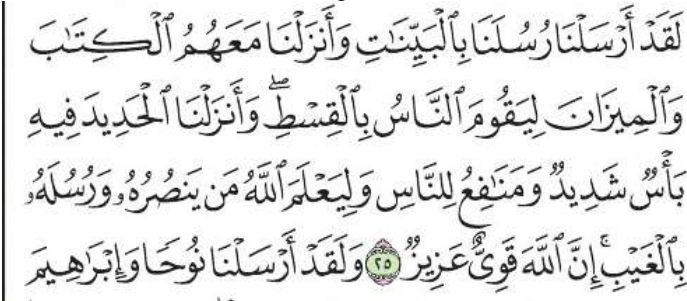 لَقَدۡ أَرۡسَلۡنَا رُسُلَنَا بِٱلۡبَيِّنَٰتِ وَأَنزَلۡنَا مَعَهُمُ ٱلۡكِتَٰبَ
وَٱلۡمِيزَانَ لِيَقُومَ ٱلنَّاسُ بِٱلۡقِسۡطِۖ وَأَنزَلۡنَا ٱلۡحَدِيدَ فِيهِ
بَأۡسٞ شَدِيدٞ وَمَنَٰفِعُ لِلنَّاسِ وَلِيَعۡلَمَ ٱللَّهُ مَن يَنصُرُهُۥ وَرُسُلَهُۥ
بِٱلۡغَيۡبِۚ إِنَّ ٱللَّهَ قَوِيٌّ عَزِيزٞ ٢٥ وَلَقَدۡ أَرۡسَلۡنَا نُوحٗا وَإِبۡرَٰهِيمَ